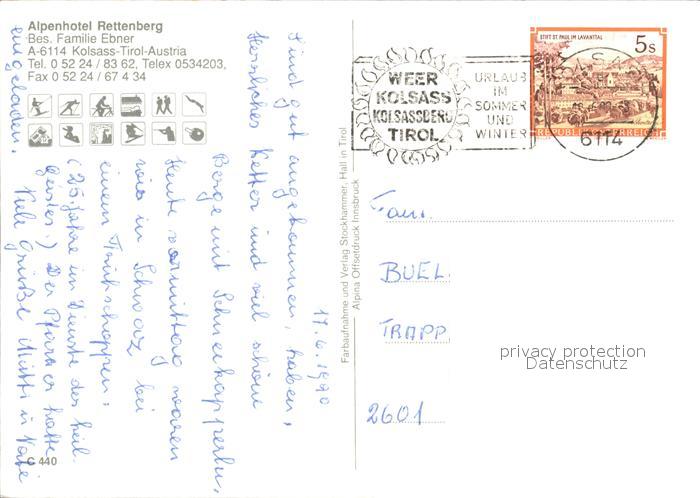 Alpenhotel Rettenberg
Bes. Familie Ebner
A-6114 Kolsass-Tirol-Austria
Tel. 0 52 24 / 83 62, Telex 0534203,
Fax 0 52 24 / 67 4 34
17.6.1990
Sind gut angekommen, haben,
Herrliches Wetter und viel schöne
Berge mit Schneekapperln,
Heute vormittag waren
wir in Schwaz bei
einem Frühschoppen.
(25 Jahre im Dienste des heil.
Geistes.) Der Pfarrer hatte
eingeladen.
Viele Grüße Mutti u Vati
C 440
Farbaufnahme und Verlag Stockhammer, Hall in Tirol
Alpina Offsetdruck Innsbruck
WEER
KOLSASS
KOLSASSBERG
TIROL
URLAUB
IM
SOMMER
UND
WINTER
STIFT ST. PAUL IM LAVANTTAL
5 S
REPUBLIK ÖSTERREICH
6114
Fam.
BUEL.
TRAPP.
2601
privacy protection
Datenschutz